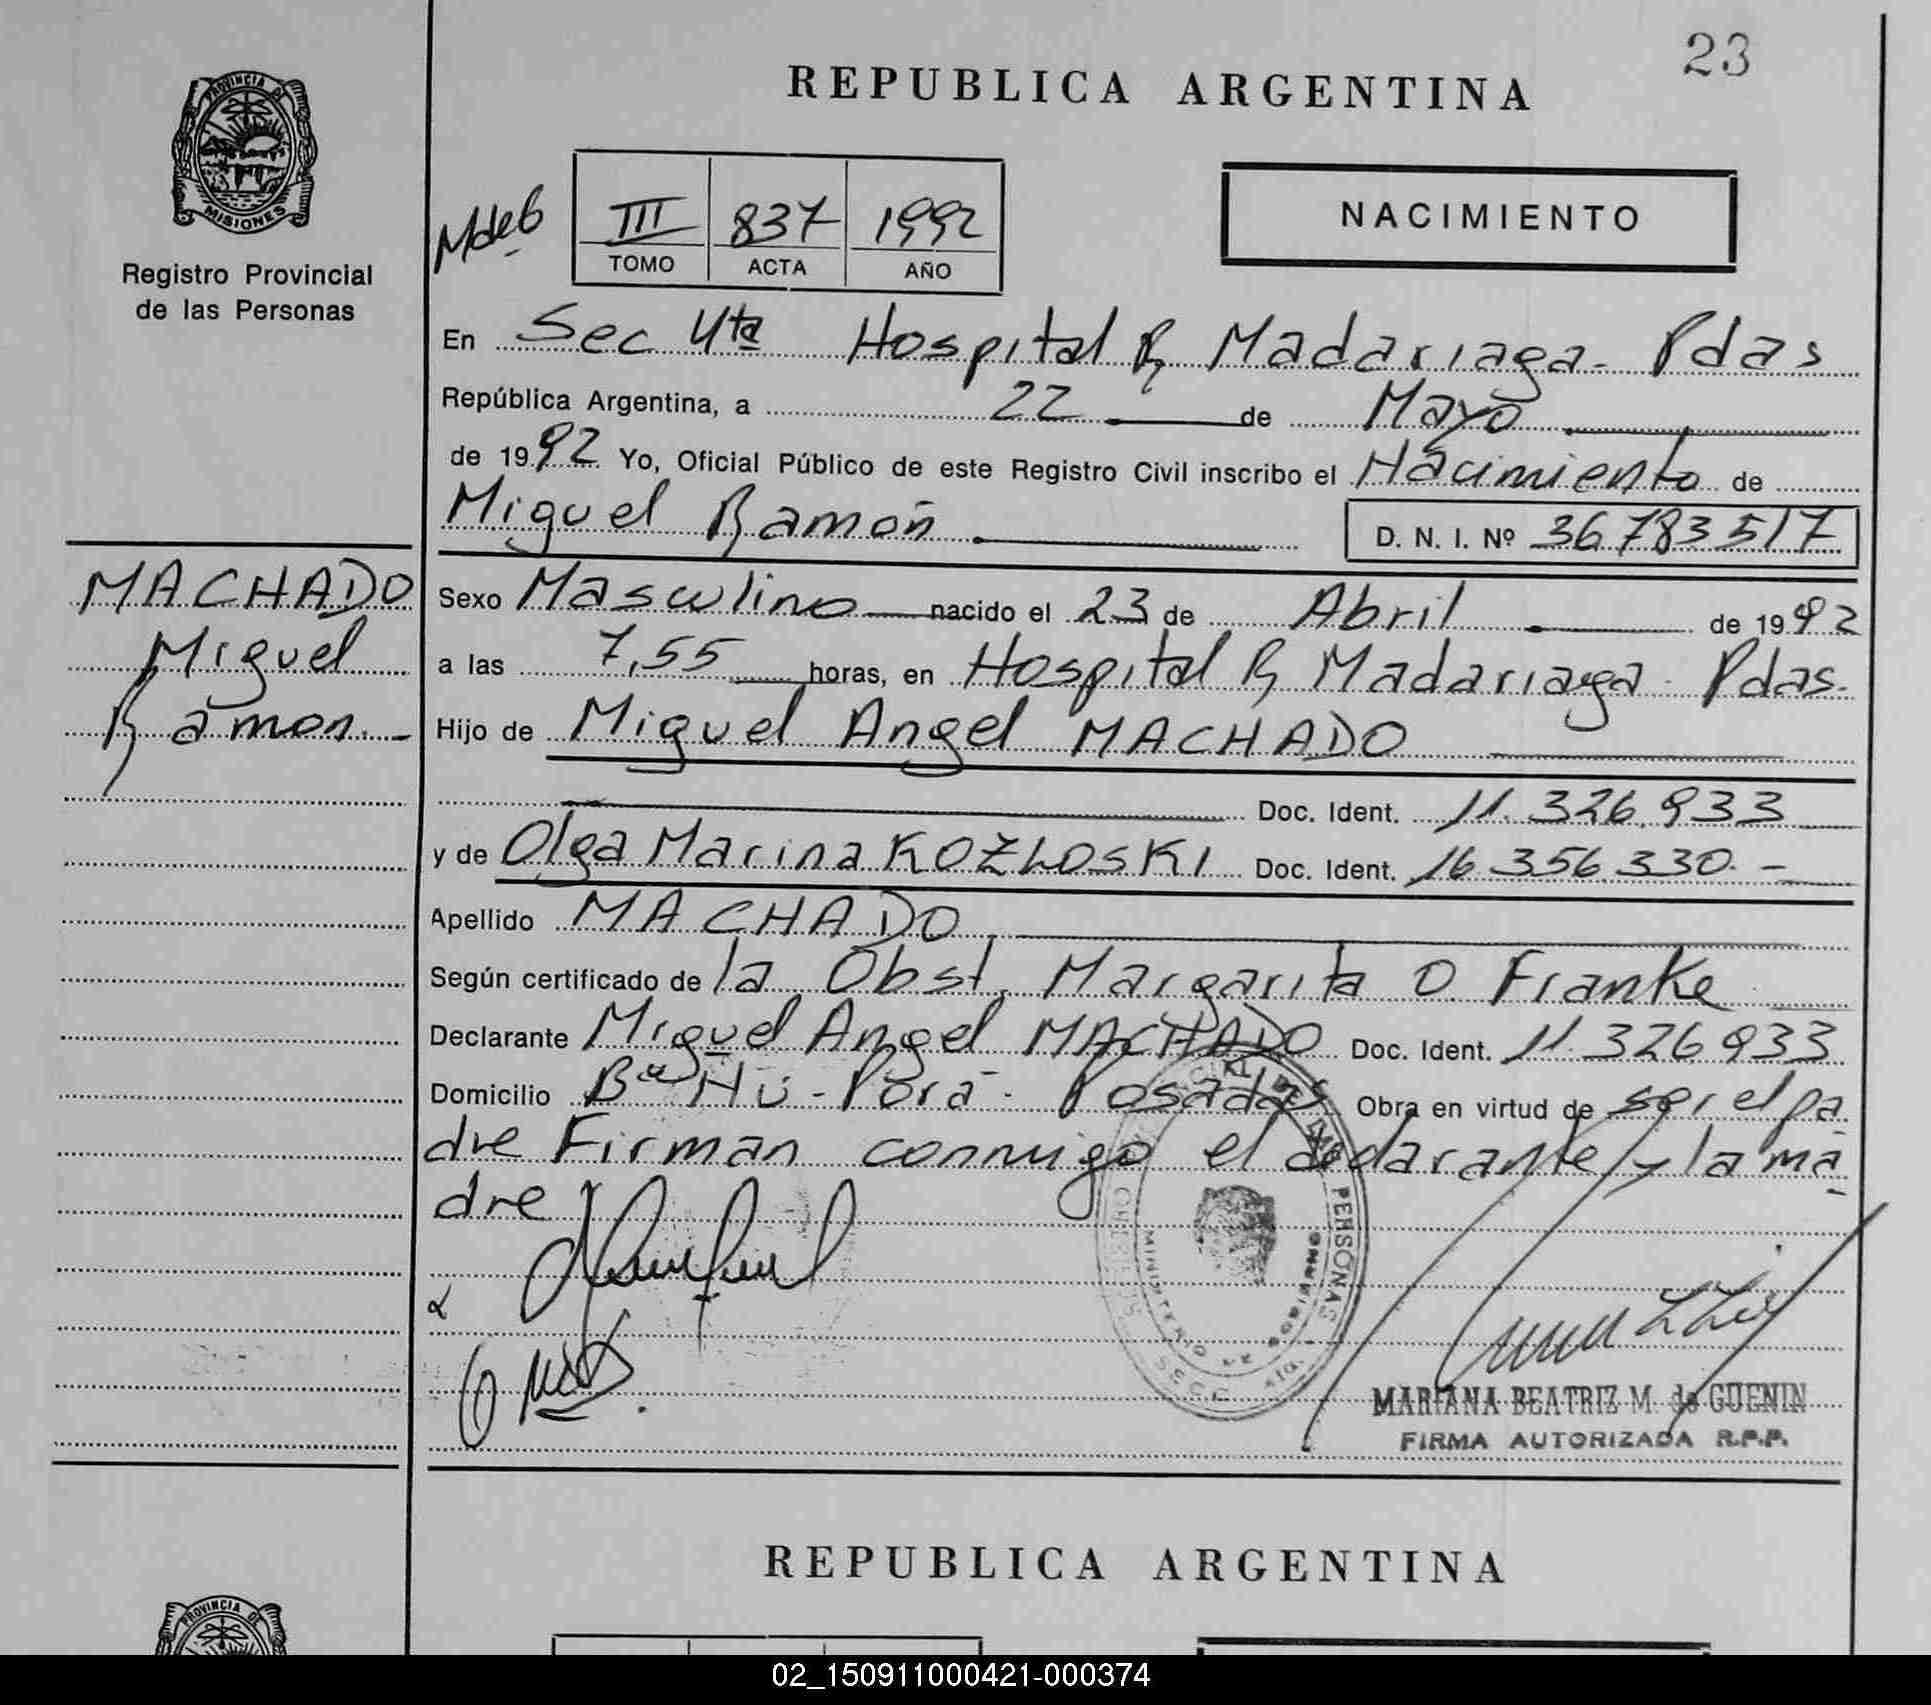 23
REPUBLICA ARGENTINA
PROVINCIA DE
MISIONES
Registro Provincial
de las Personas
NACIMIENTO
III 837 1992
TOMO ACTA AÑO
En Sec 4ta Hospital R Madariaga - Pdas
República Argentina, a 22 de Mayo
de 1992 Yo, Oficial Público de este Registro Civil inscribo el Nacimiento de
Miguel Ramón D. N. I. Nº 36783517
MACHADO
Miguel
Ramon.-
Sexo Masculino nacido el 23 de Abril de 1992
a las 7,55 horas, en Hospital R Madariaga - Pdas.
Hijo de Miguel Angel MACHADO
Doc. Ident. 11.326.933
y de Olga Marina KOZLOSKI Doc. Ident. 16.356.330.-
Apellido MACHADO
Según certificado de la Obst. Margarita O. Franke
Declarante Miguel Angel MACHADO Doc. Ident. 11.326.933
Domicilio Bº Ñú-Porá - Posadas Obra en virtud de ser el pa
dre Firman conmigo el declarante y la ma
dre
PERSONAS
MINISTERIO DE GOBIERNO
MARIANA BEATRIZ M. de GUENIN
FIRMA AUTORIZADA R.P.P.
REPUBLICA ARGENTINA
PROVINCIA DE
02_150911000421-000374